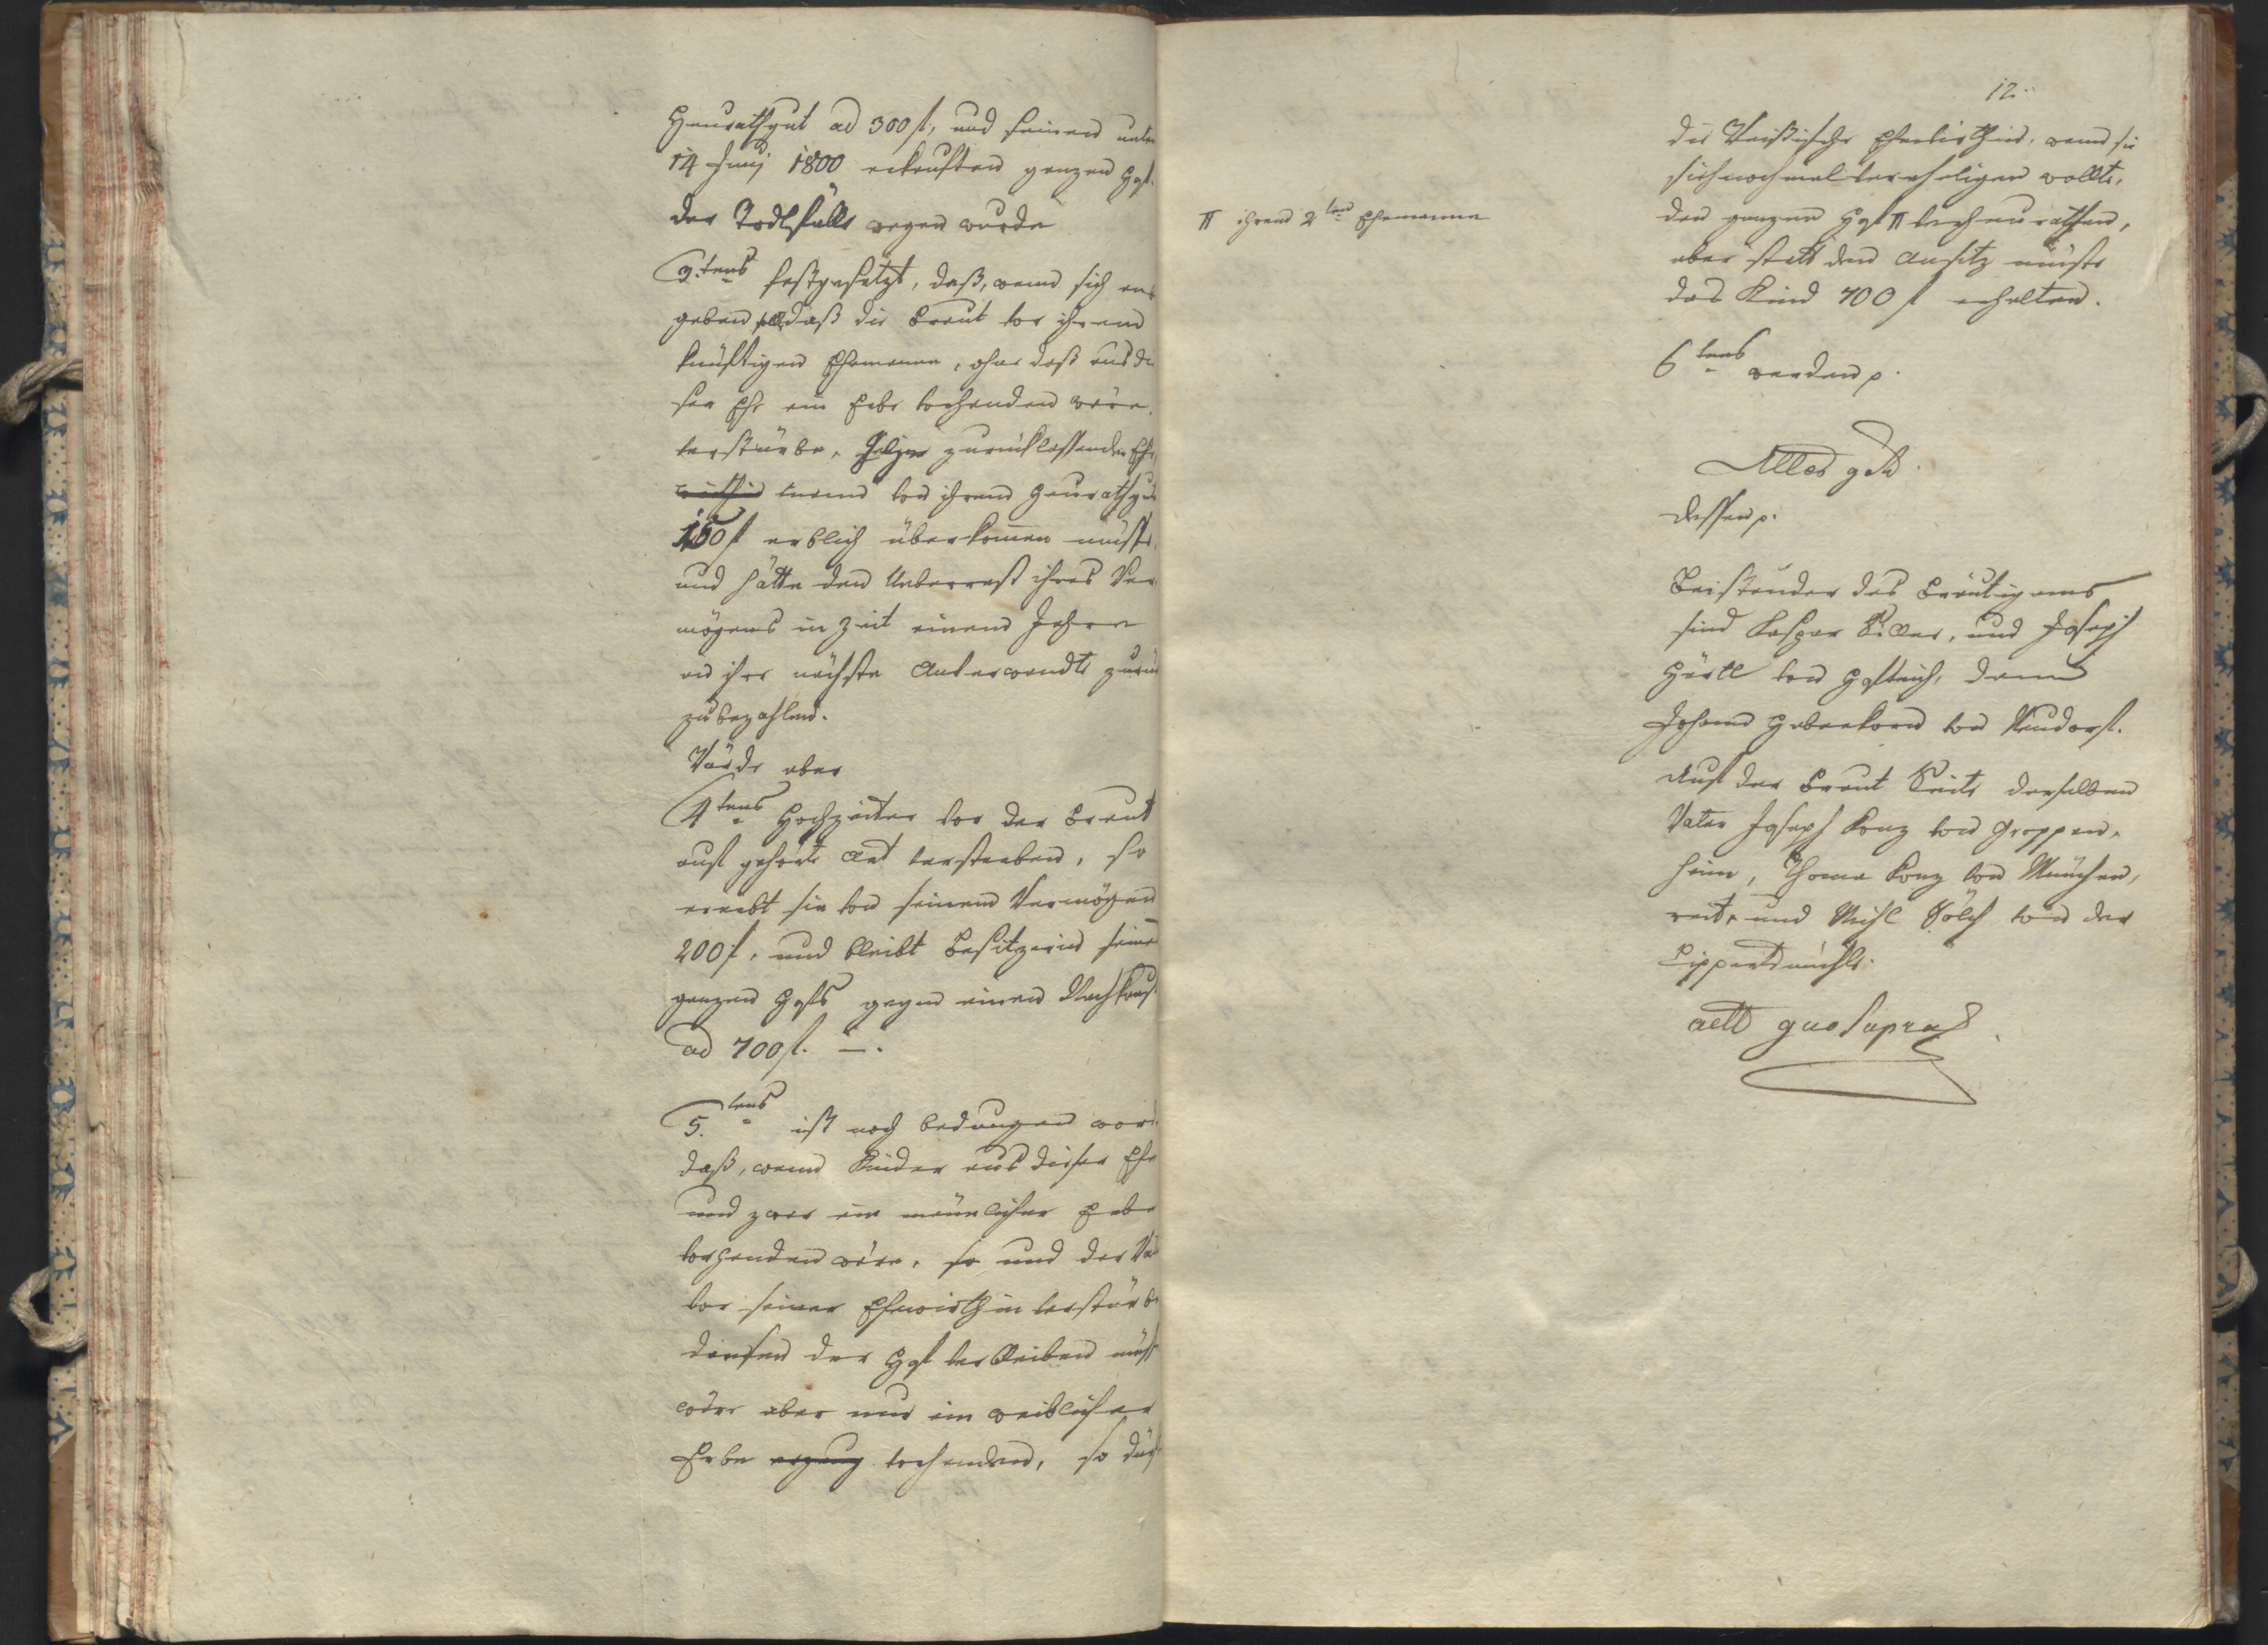 Heurathgut ad 300 f, und seinen unter
14 Junj 1800 erkauften ganzen Hof.
der Todtsfälle wegen wurde
3.tens festgesetzt, daß, wenn sich
geben daß die Braut vor ihrem
künftigen Ehemann, ohne daß aus die
ser Ehe ein Erbe vorhanden wäre,
verstürbe, zurücklassender Ehe
von ihrem Heurathgut
150 f erblich überkommen müßte,
und hätte den Ueberrest ihres Ver
mögens in Zeit einem Jahre
an ihre nächste Anverwandte zurück
zubezahlen.
Würde aber
4tens Hochzeiter vor der Braut
auf gehörte Art versterben, so
ererbt sie von seinem Vermögen
200 f, und bleibt Besitzerin seines
ganzen Hofs gegen einen Nachkauf
ad 700 f. —.
5.tens ist noch bedungen word
daß, wenn Kinder aus dieser Ehe
und zwar ein mänlicher Erbe
vorhanden wäre, so und der Va
vor seiner Ehewirthin verstürbe
diesen der Hof verbleiben müßt
wäre aber nur ein weiblicher
Erbe vorhanden, so dürf
12.
die Ehewirthin, wenn sie
sich nochmal vereheligen wollte,
den ganzen Hof π verheurathen,
aber statt den Ansitz müßte
das Kind 700 f erhalten.
π ihrem 2ten Ehemanne
6tens werden p.
Alles
Dessen p.
Beiständer des Bräutigams
sind Kaspar, und Joseph
Härtl von, dann
Johann Haberkorn von Neudorf.
Auf der Braut Seite derselben
Vater Joseph Konz von Groppen,
heim, Thoma Konz von München,
reit, und Michl Sölch von der
Lippertsmühle.
actt quo supra